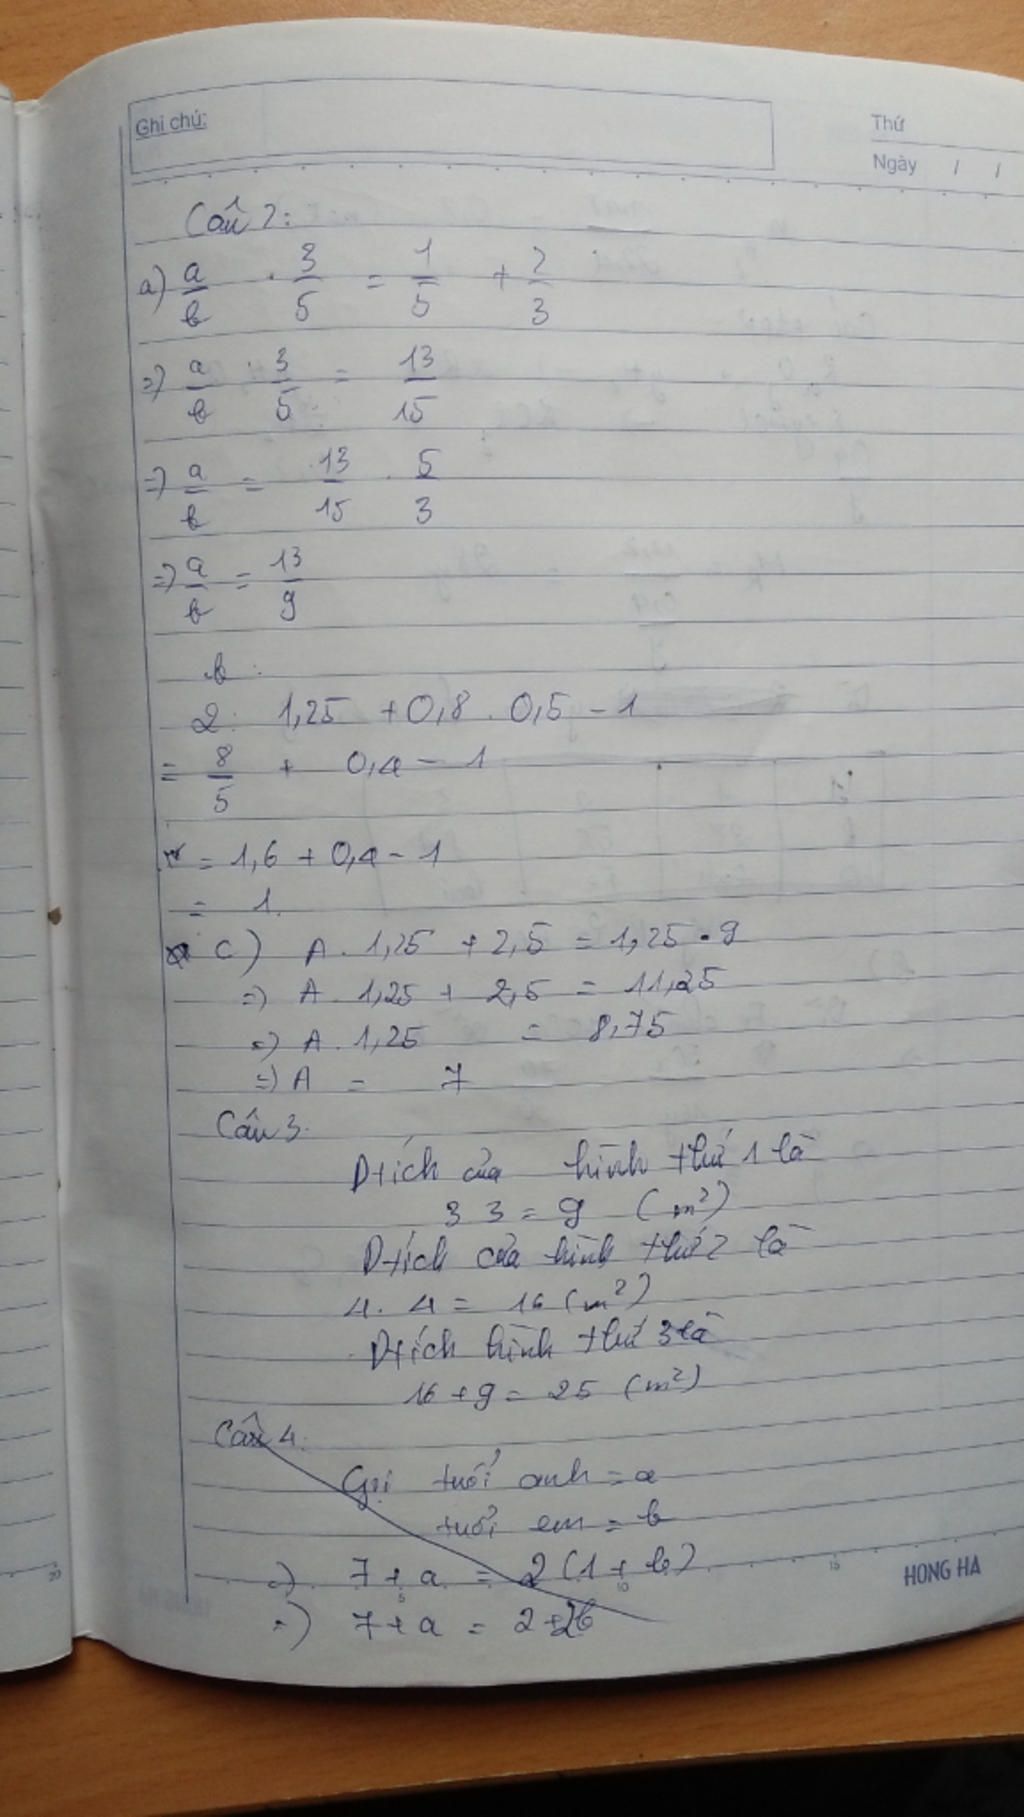 Ghi chú:
Thứ
Ngày / /
Câu 2:
a) a/b . 3/5 = 1/5 + 2/3
=) a/b . 3/5 = 13/15
=) a/b = 13/15 . 5/3
=) a/b = 13/9
b:
2: 1,25 + 0,8 . 0,5 - 1
= 8/5 + 0,4 - 1
= 1,6 + 0,4 - 1
= 1.
c) A . 1,25 + 2,5 = 1,25 . 9
=) A . 1,25 + 2,5 = 11,25
=) A . 1,25 = 8,75
=) A = 7
Câu 3.
Dtích của hình thứ 1 là
3 3 = 9 (m²)
Dtích của hình thứ 2 là
4. 4 = 16 (m²)
Dtích hình thứ 3 là
16 + 9 = 25 (m²)
Câu 4.
Gọi tuổi anh = a
tuổi em = b
=) 7 + a = 2 (1 + b)
=) 7 + a = 2 + 2b
5 10 15
HONG HA
20